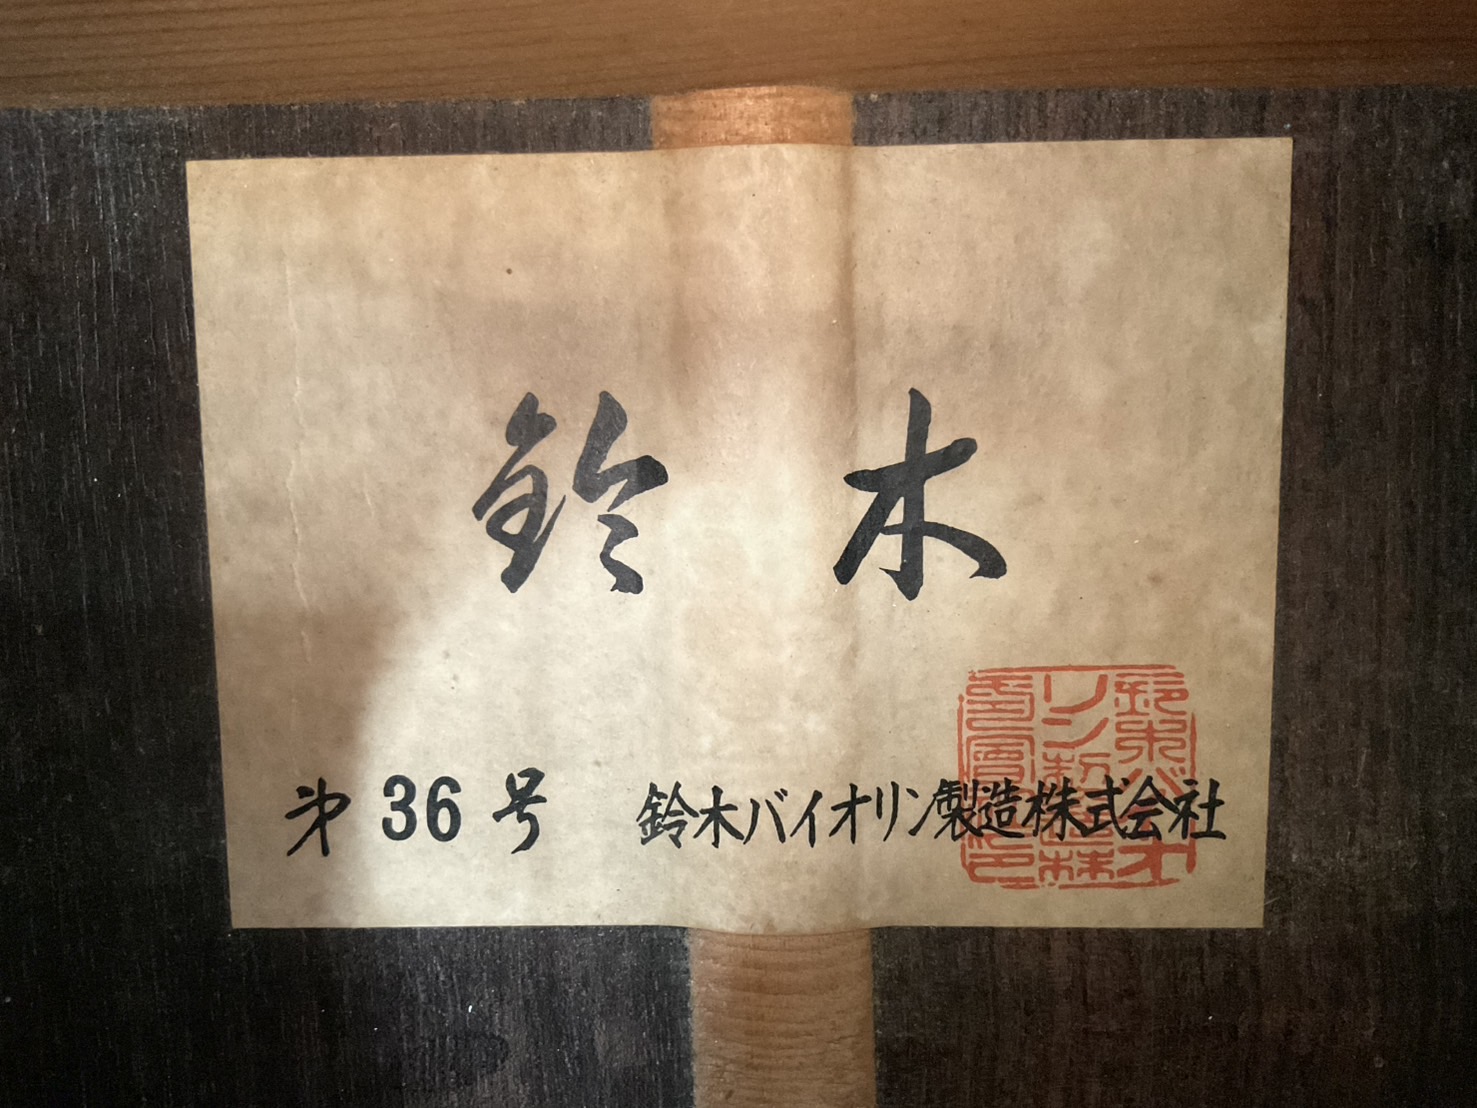 鈴木
第36号 鈴木バイオリン製造株式会社